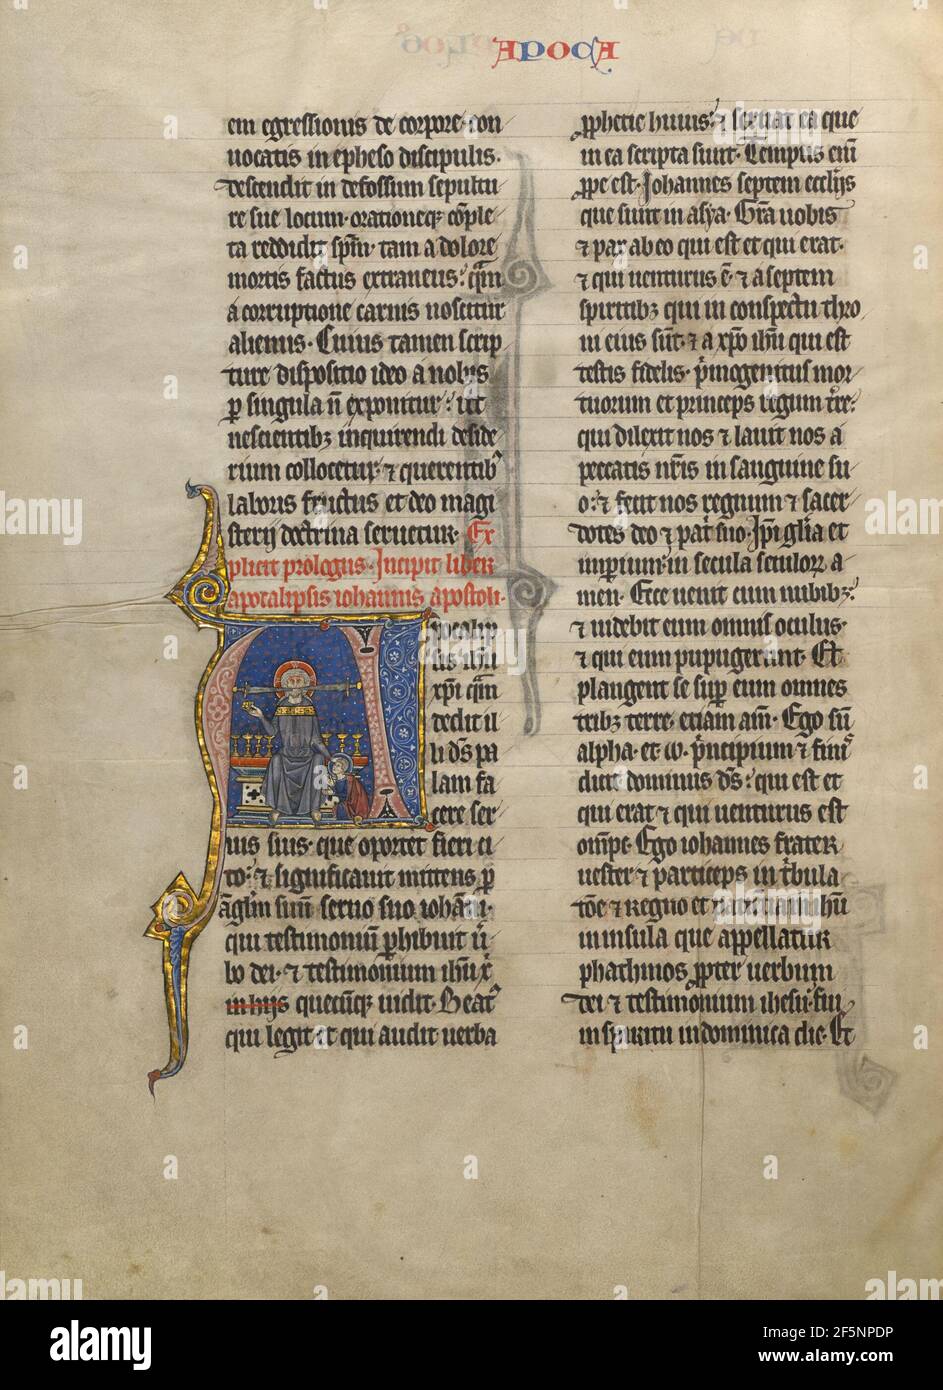 APOCA
em egressionis de corpore· con
uocatis in epheso discipulis·
descendit in defossum sepultu
re sue locum· orationeq; cōple
ta reddidit sp̄m· tam a dolore
mortis factus extraneus: q̄m
a corruptione carnis noscitur
alienus· Cuius tamen scrip
ture dispositio ideo a nobis
p singula n̄ exponitur: ut
nescientibȝ inquirendi deside
rium collocetur· ⁊ querentibꝰ
laboris fructus et deo magi
sterij doctrina seruetur· Ex
plicit prologus· Incipit liber
apocalipsis iohannis apostoli·
Apocalip
sis ihū
xp̄i q̄m
dedit il
li dꝰs pa
lam fa
cere ser
uis suis· que oportet fieri ci
to: ⁊ significauit mittens p
āglm̄ suū seruo suo iohāni·
qui testimoniū phibuit ū
bo dei· ⁊ testimonium ihū xp̄
in hijs quecūq; uidit· Beatꝰ
qui legit et qui audit uerba
pphetie huius: ⁊ seruat ea que
in ea scripta sunt· Tempus eni
ppe est· Johannes septem eccl̄ijs
que sunt in asya· Gr̄a uobis
⁊ pax ab eo qui est et qui erat·
⁊ qui uenturus ē ⁊ a septem
spiritibȝ qui in conspectu thro
ni eius sūt· ⁊ a xp̄o ihū qui est
testis fidelis· pimogenitus mor
tuorum et princeps regum tr̄re·
qui dilexit nos ⁊ lauit nos a
peccatis nr̄is in sanguine su
o: ⁊ fecit nos regnum ⁊ sacer
dotes deo ⁊ patri suo· Ipi gl̄ia et
imperium in secula seculoꝝ a
men· Ecce uenit cum nubibȝ:
⁊ uidebit eum omnis oculus·
⁊ qui eum pupugerunt· Et
plangent se sup eum omnes
tribȝ terre· etiam am̄· Ego sū
alpha· et ω· pincipium ⁊ finiꝰ
dicit dominus dꝰs: qui est et
qui erat ⁊ qui uenturus est
om̄ps· Ego iohannes frater
uester ⁊ particeps in t̄bula
tōe ⁊ regno et
in insula que appellatur
phathmos ppter uerbum
dei ⁊ testimonium ihesu· fui
in spiritu in dominica die· Et
alamy
Image ID: 2F5NPDP
www.alamy.com